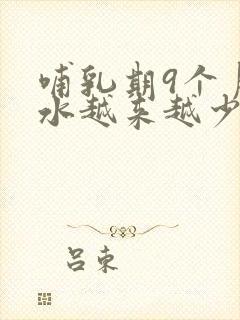 哺乳期9个
水越来越少
吕束